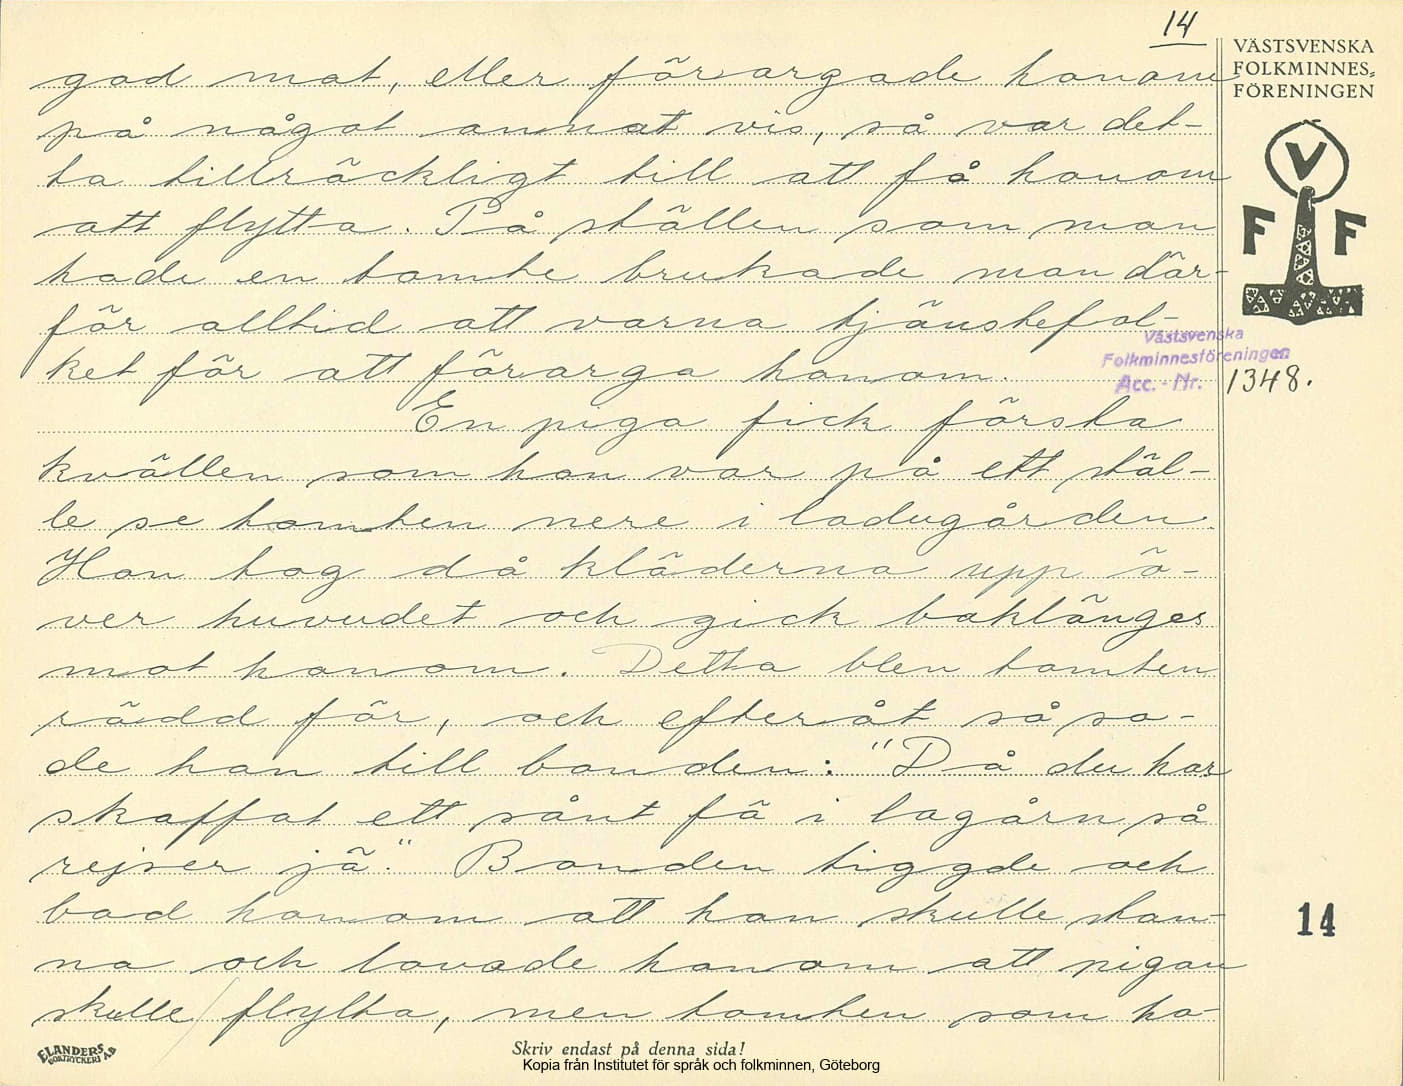 14
VÄSTSVENSKA
FOLKMINNES-
FÖRENINGEN
V
F F
god mat, eller förargade honom
på något annat vis, så var det-
ta tillräckligt till att få honom
att flytta. På ställen som man
hade en tomte brukade man där-
för alltid att varna tjänstefol-
ket för att förarga honom.
Västsvenska
Folkminnesföreningen
Acc. - Nr. 1348.
En piga fick första
kvällen som hon var på ett stäl-
le se tomten nere i ladugården.
Hon tog då kläderna upp ö-
ver huvudet och gick baklänges
mot honom. Detta blev tomten
rädd för, och efteråt så sa-
de han till bonden: "Då du har
skaffat ett sånt fä i lagårn så
rejser jä." Bonden tiggde och
bad honom att han skulle stan-
na och lovade honom att pigan
skulle flytta, men tomten som ha-
14
ELANDERS
BOKTRYCKERI A.B
Skriv endast på denna sida!
Kopia från Institutet för språk och folkminnen, Göteborg